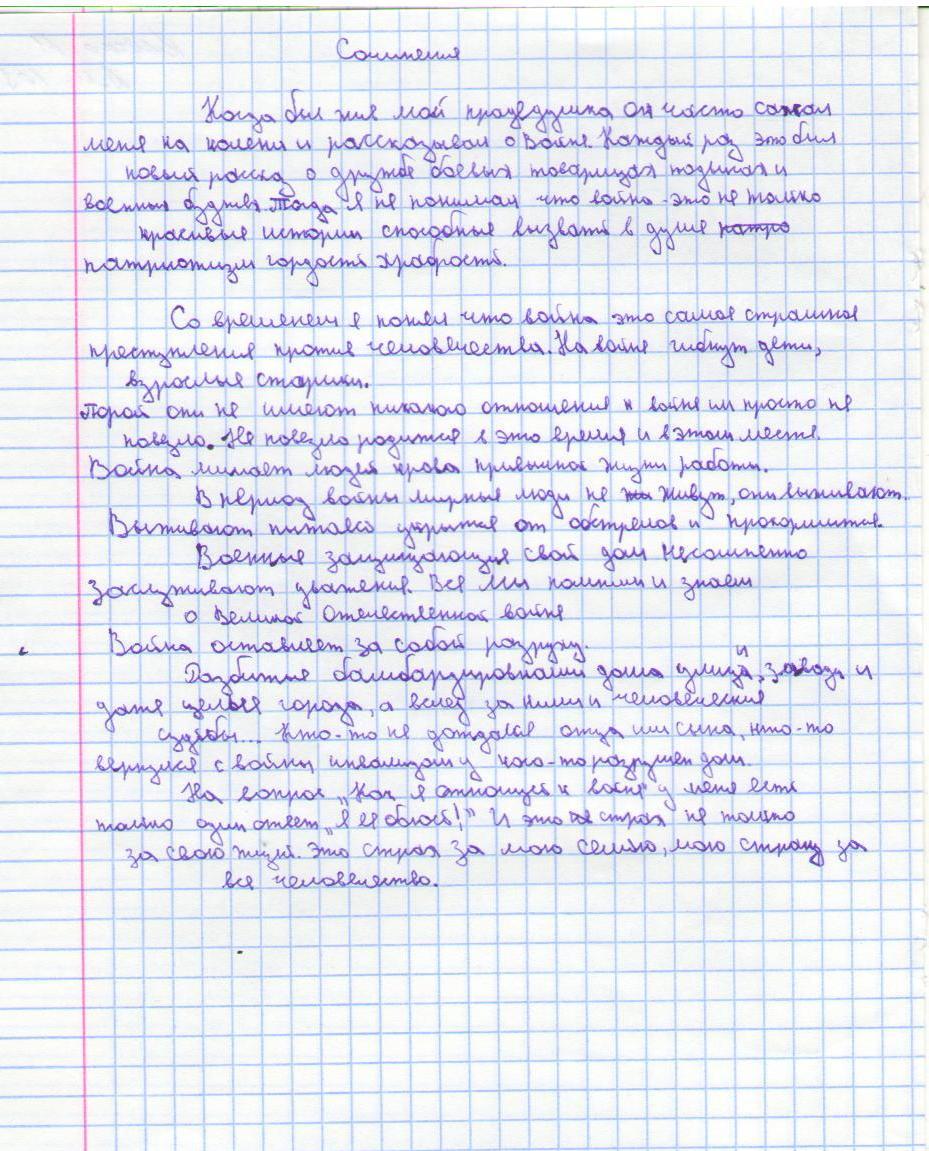 Сочинения
Когда был жив мой прадедушка он часто сажал
меня на колени и рассказывал о Войне. Каждый раз это был
новый рассказ о дружбе боевых товарищах подвигах и
военных буднях. Тогда я не понимал что война - это не только
красивые истории способные вызвать в душе
патриотизм гордость храбрость.
Со временем я понял что война это самое страшное
преступления против человечества. На войне гибнут дети,
взрослые старики.
Порой они не имеют никакого отношения к войне им просто не
повезло. Не повезло родится в это время и в этом месте.
Война лишает людей крова привычной жизни работы.
В период войны мирные люди не живут, они выживают.
Выживают пытаясь укрыться от обстрелов и прокормится.
Военные защищающие свой дом несомненно
заслуживают уважения. Все мы помним и знаем
о Великой Отечественной войне
Война оставляет за собой разруху.
Разбитые бомбардировками дома улицы, заводы и
даже целые города, а вслед за ними и человеческие
судьбы... Кто-то не дождался отца или сына, кто-то
вернулся с войны инвалидом у кого-то разрушен дом.
На вопрос „Как я отношусь к войне" у меня есть
только один ответ „Я её боюсь!" И это страх не только
за свою жизнь. Это страх за мою семью, мою страну за
все человечество.